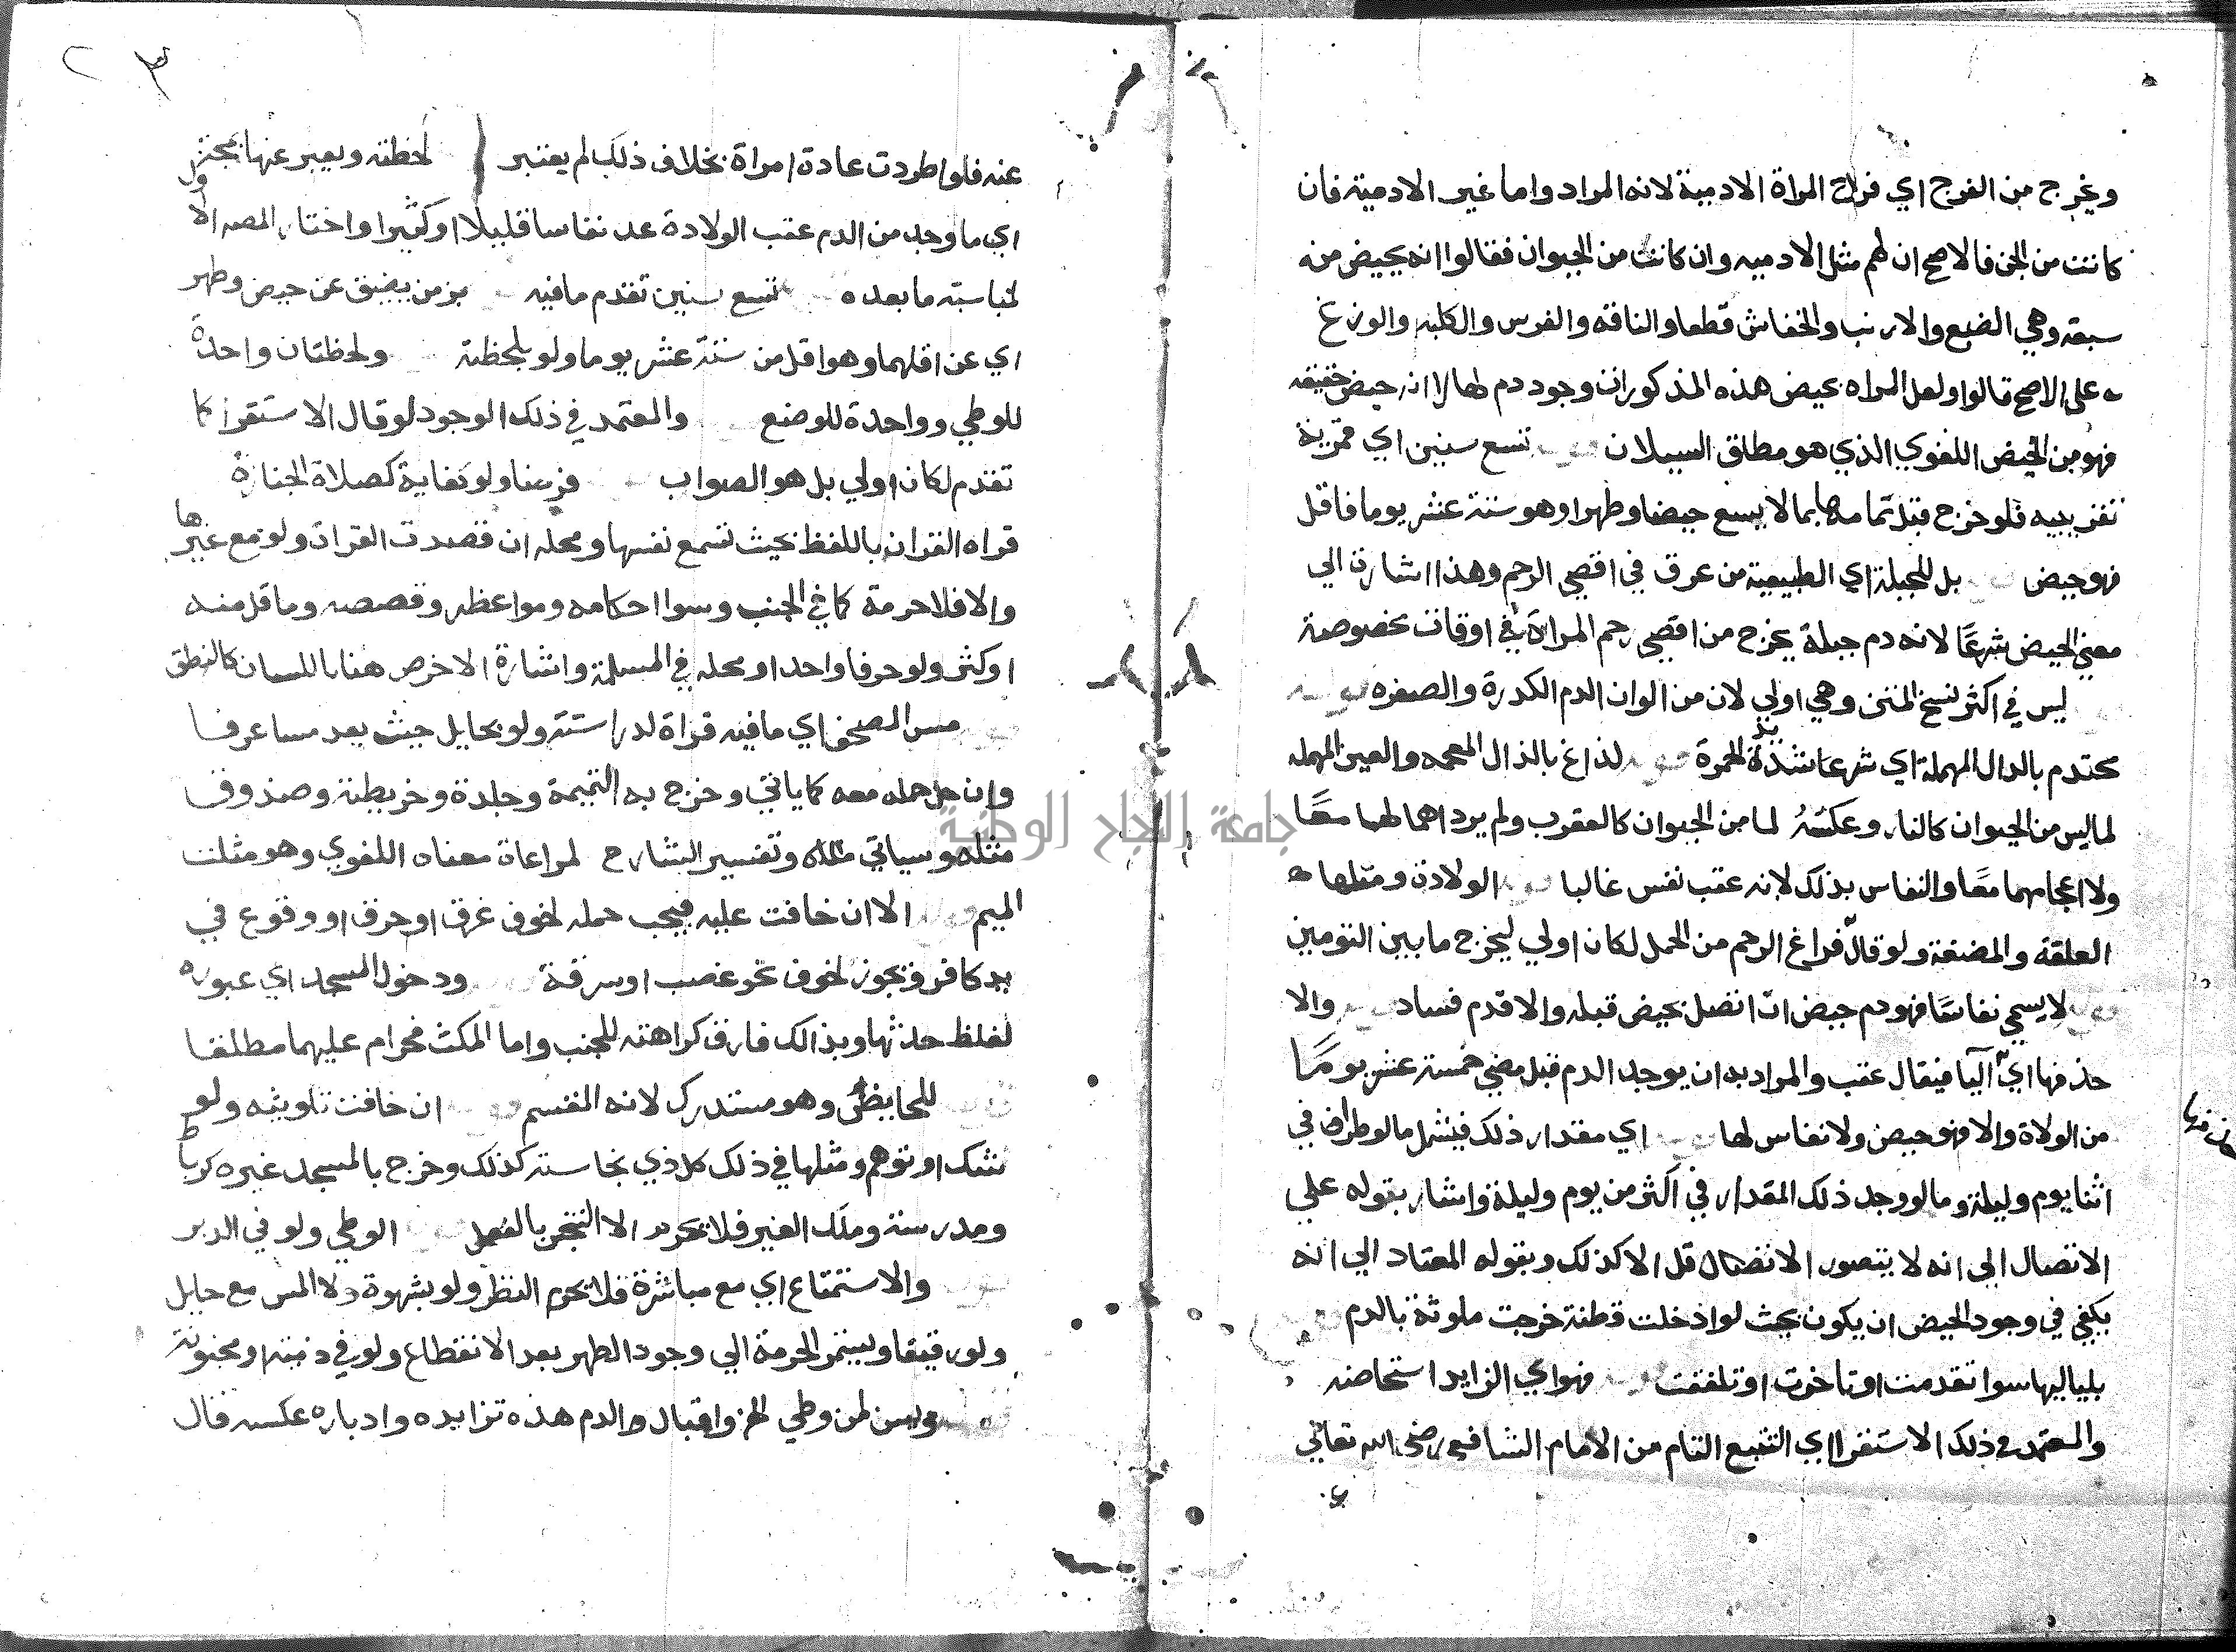 ويخرج من الفرج اي فراح المراة الادمية لانه المراد واما غير الادمية فان
كانت من الجن فالاصح ان لهم مثل الادميه وان كانت من الحيوان فقالوا انه يحيض منه
سبعة وهي الضبع والارنب والخفاش قطعا والناقه والفرس والكلبه والوزغ
على الاصح قالوا ولعل المراه بحيض هذه المذكورات وجود دم لها لا انه حيض حقيقه
فهو من الحيض اللغوي الذي هو مطلق السيلان تسع سنين اي قمرية
تقريبيه فلو خرج قبل تمامها بما لا يسع حيضا وطهرا وهو ستة عشر يوما فاقل
فهو حيض بل للجبلة اي الطبيعية من عرق في اقصى الرحم وهذا اشارة الي
معني الحيض شرعًا لانه دم جبلة يخرج من اقصي رحم المراة في اوقات مخصوصة
ليس في اكثر نسخ المتن وهي اولي لان من الوان الدم الكدرة والصفره قوله
محتدم بالدال المهملة اي شرعا شديد الحمرة قوله لذاغ بالذال المعجمه والعين المهمله
لما ليس من الحيوان كالنار وعكسُهُ لما من الحيوان كالعقرب ولم يرد اهمالهما معًا
ولا اعجامهما معًا والنفاس بذلك لانه عقب نفس غالبا قوله الولادة ومثلها
العلقة والمضغة ولو قال فراغ الرحم من الحمل لكان اولي ليخرج ما بين التومين
لا يسمي نفاسًا فهو دم حيض ان اتصل بحيض قبله والا فدم فساد قوله والا
حذفها اي اليا فيقال عقب والمراد به ان يوجد الدم قبل مضي خمسة عشر يومًا
من الولاة والا فهو حيض ولا نفاس لها اي مقدار ذلك فيشمل ما لو طرا في
اثنا يوم وليلة وما لو وجد ذلك المقدار في اكثر من يوم وليلة واشار بقوله علي
الاتصال الي انه لا يتصور الاتصال قل الا كذلك وبقوله المعتاد الي انه
يكفي في وجود الحيض ان يكون بحيث لو ادخلت قطنة خرجت ملوثة بالدم
بلياليها سوا تقدمت او تاخرت او تلفقت قوله فهو اي الزايد استحاضه
والمعتمد في ذلك الاستقرا اي التتبع التام من الامام الشافعي رضي الله تعالي
٣
عنه فلو اطردت عادة امراة بخلاف ذلك لم يعتبر لحظته ويعبر عنها بمجة
اي ما وجد من الدم عقب الولادة عد نفاسا قليلا او كثيرا واختار المصه الاول
لمناسبته ما بعده تسع سنين تقدم مافيه بزمن يضيق عن حيض وطهر
اي عن اقلهما وهو اقل من ستة عشر يوما ولو بلحظة ولحظتان واحدة
للوطي وواحدة للوضع والمعتمد في ذلك الوجود لو قال الاستقرا كما
تقدم لكان اولي بل هو الصواب فرضا ولو كفاية كصلاة الجنازة
قراه القران باللفظ بحيث تسمع نفسها ومحله ان قصدت القراة ولو مع غيرها
والا فلا حرمة كما في الجنب وسوا احكامه ومواعظه وقصصه وما قل منه
او كثر ولو حرفا واحدا ومحله في المسلمة واشارة الاخرص هنا باللسان كالنطق
مس المصحف اي ما فيه قراة لدراسته ولو بحايل حيث يعد مسا عرفا
وان حل حمله معه كما ياتي وخرج به التميمة وجلدة وخريطته وصندوق
مثله وسياتي وتفسير الشارح لمراعاة معناه اللغوي وهو مثلت
الميم قوله الا ان خافت عليه فيجب حمله لخوف غرق او حرق او وقوع في
يد كافر ويجوز لخوف نحو غصب او سرقة ودخول المسجد اي عبوره
لغلظ حدثها وبذالك فارق كراهته للجنب واما المكث فحرام عليهما مطلقا
للحايظ وهو مستدرك لانه المقسم قوله ان خافت تلويثه ولو
بشك او توهم ومثلها في ذلك كل ذي نجاسة كذلك وخرج بالمسجد غيره كرباط
ومدرسة وملك الغير فلا يحرم الا التنجس بالفعل الوطي ولو في الدبر
والاستمتاع اي مع مباشرة فلا يحرم النظر ولو بشهوة ولا المس مع حايل
ولو رقيقا ويستمر الحرمة الي وجود الطهر بعد الانقطاع ولو في ذميه او مجنونة
ويسن لمن وطي الخ واقبال الدم هذه تزايده وادباره عكسه قال
جامعة النجاح الوطنية